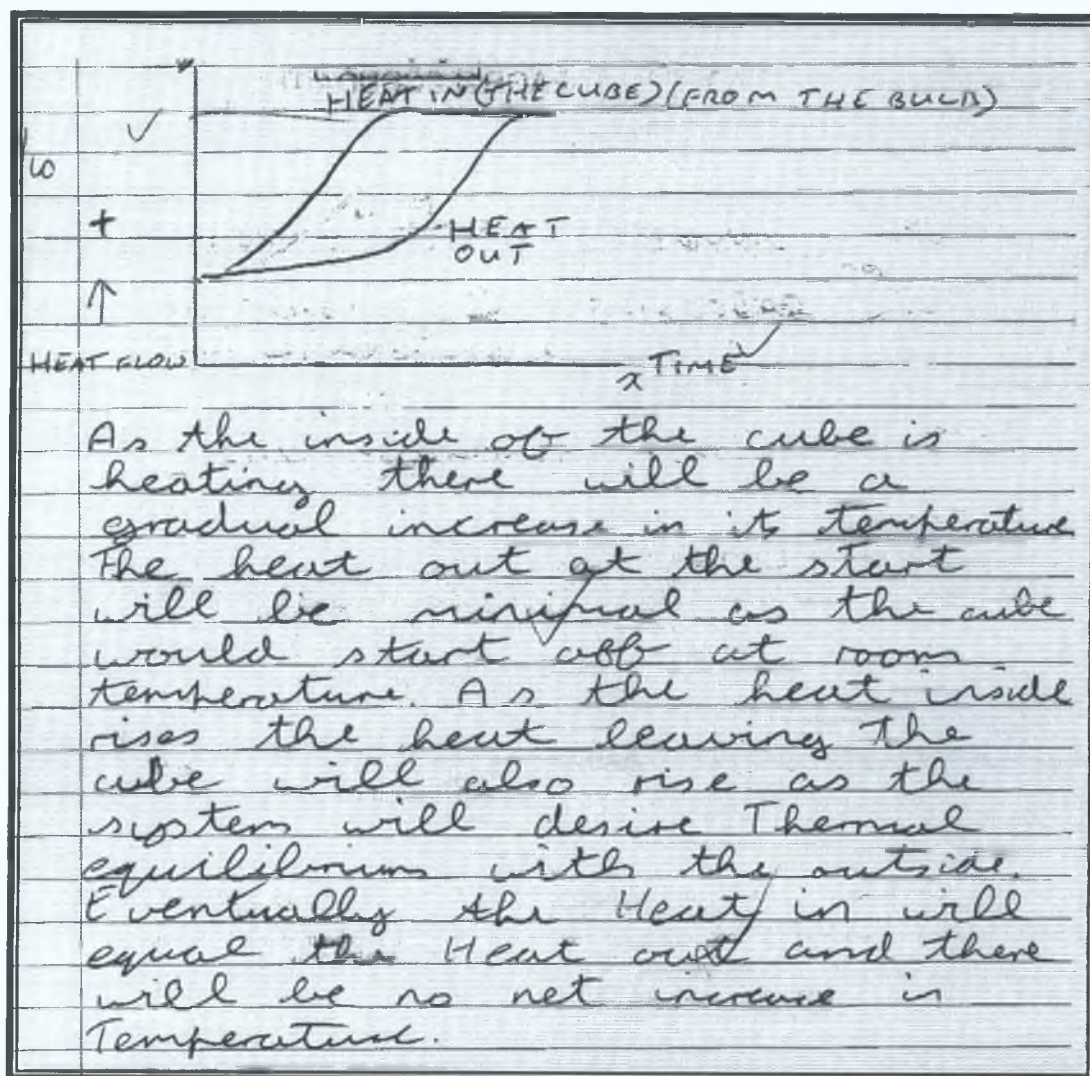 HEAT IN (THE CUBE) (FROM THE BULB)
+
HEAT
OUT
HEAT FLOW
x TIME
As the inside of the cube is
heating there will be a
gradual increase in its temperature
The heat out at the start
will be minimal as the cube
would start off at room
temperature. As the heat inside
rises the heat leaving the
cube will also rise as the
system will desire Thermal
equilibrium with the outside.
Eventually the Heat in will
equal the Heat out and there
will be no net increase in
Temperature.